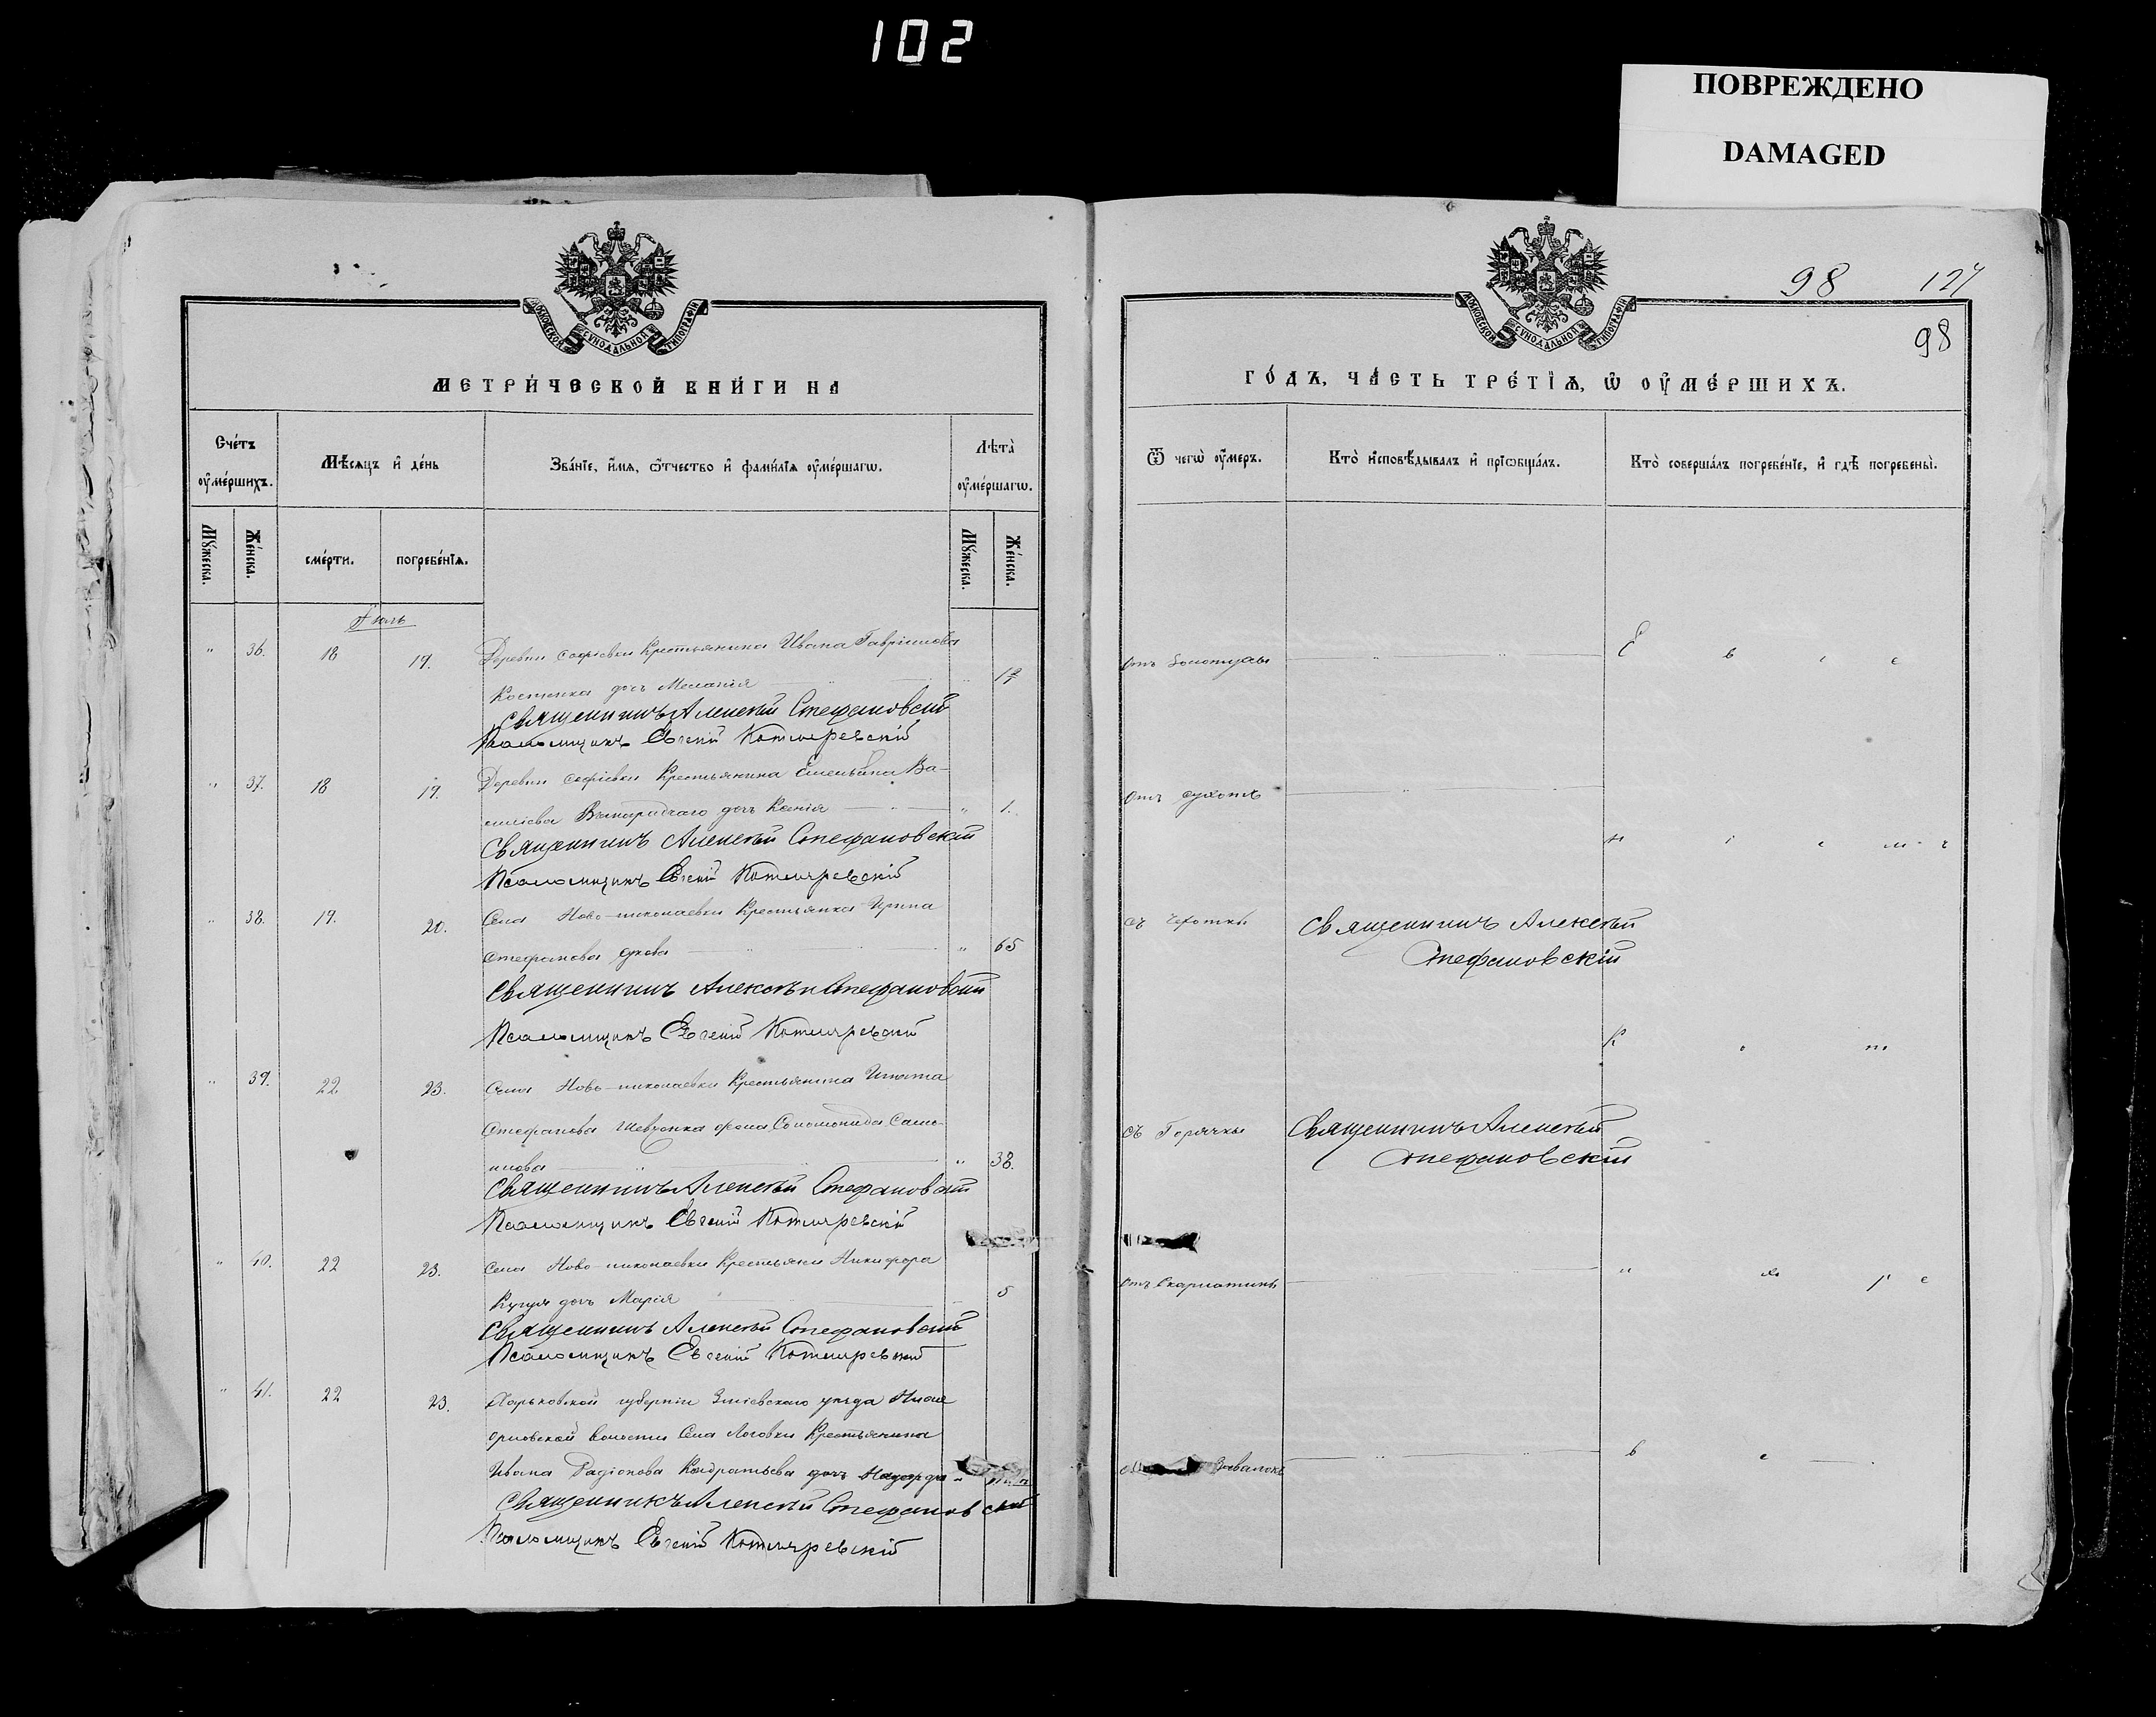 102
ПОВРЕЖДЕНО
DAMAGED
МОСКОВСКОЙ СѴНОДАЛЬНОЙ ТИПОГРАФІИ
МЕТРИ́ЧЕСКОЙ КНИ́ГИ НА
Сче́тъ оу҆ме́ршихъ.
Мѣ́сяцъ и҆ де́нь
Зва́нїе, и҆́мѧ, ѻ҆́тчество и҆ фами́лїѧ оу҆ме́ршагѡ.
Лѣта̀ оу҆ме́ршагѡ.
Мꙋ́жеска.
Же́нска.
сме́рти.
погребе́нїѧ.
Мꙋ́жеска.
Же́нска.
Іюль
" 36. 18 19. Деревни Софіевки Крестьянина Ивана Гавріилова
Костенка дочь Меланія
Священникъ Алексѣй Стефановскій
Псаломщикъ Евгеній Котляревскій
" 37. 18 19. Деревни Софіевки Крестьянина Емельяна Ва-
силіева дочь Ксенія " 1.
Священникъ Алексѣй Стефановскій
Псаломщикъ Евгеній Котляревскій
" 38. 19. 20. Села Ново-николаевки Крестьянка Ирина
Стефанова " 65
Священникъ Алексѣй Стефановскій
Псаломщикъ Евгеній Котляревскій
" 39. 22 23. Села Ново-николаевки Крестьянина Игната
Стефанова Шевченка жена Соломонида Само-
илова " 38.
Священникъ Алексѣй Стефановскій
Псаломщикъ Евгеній Котляревскій
" 40. 22 23. Села Ново николаевки Крестьянина Никифора
дочь Марія 5
Священникъ Алексѣй Стефановскій
Псаломщикъ Евгеній Котляревскій
" 41. 22 23. Харьковской губерніи Зміевского уѣзда
орловской волости Села Лозовки Крестьянина
Ивана Радіонова Кондратьева дочь
Священникъ Алексѣй Стефановскій
Псаломщикъ Евгеній Котляревскій
98 127
98
МОСКОВСКОЙ СѴНОДАЛЬНОЙ ТИПОГРАФІИ
ГО́ДЪ, ЧА́СТЬ ТРЕ́ТЇѦ, Ѡ҆ ОУ҆МЕ́РШИХЪ.
Ѿ чегѡ̀ оу҆́меръ.
Кто̀ и҆сповѣ́дывалъ и҆ прїѡбща́лъ.
Кто̀ соверша́лъ погребе́нїе, и҆ гдѣ̀ погребены̀.
Отъ Золотухи
Отъ сухотъ
съ чахотки Священникъ Алексѣй
Стефановскій
съ Горячки Священникъ Алексѣй
Стефановскій
Отъ Скарлатины